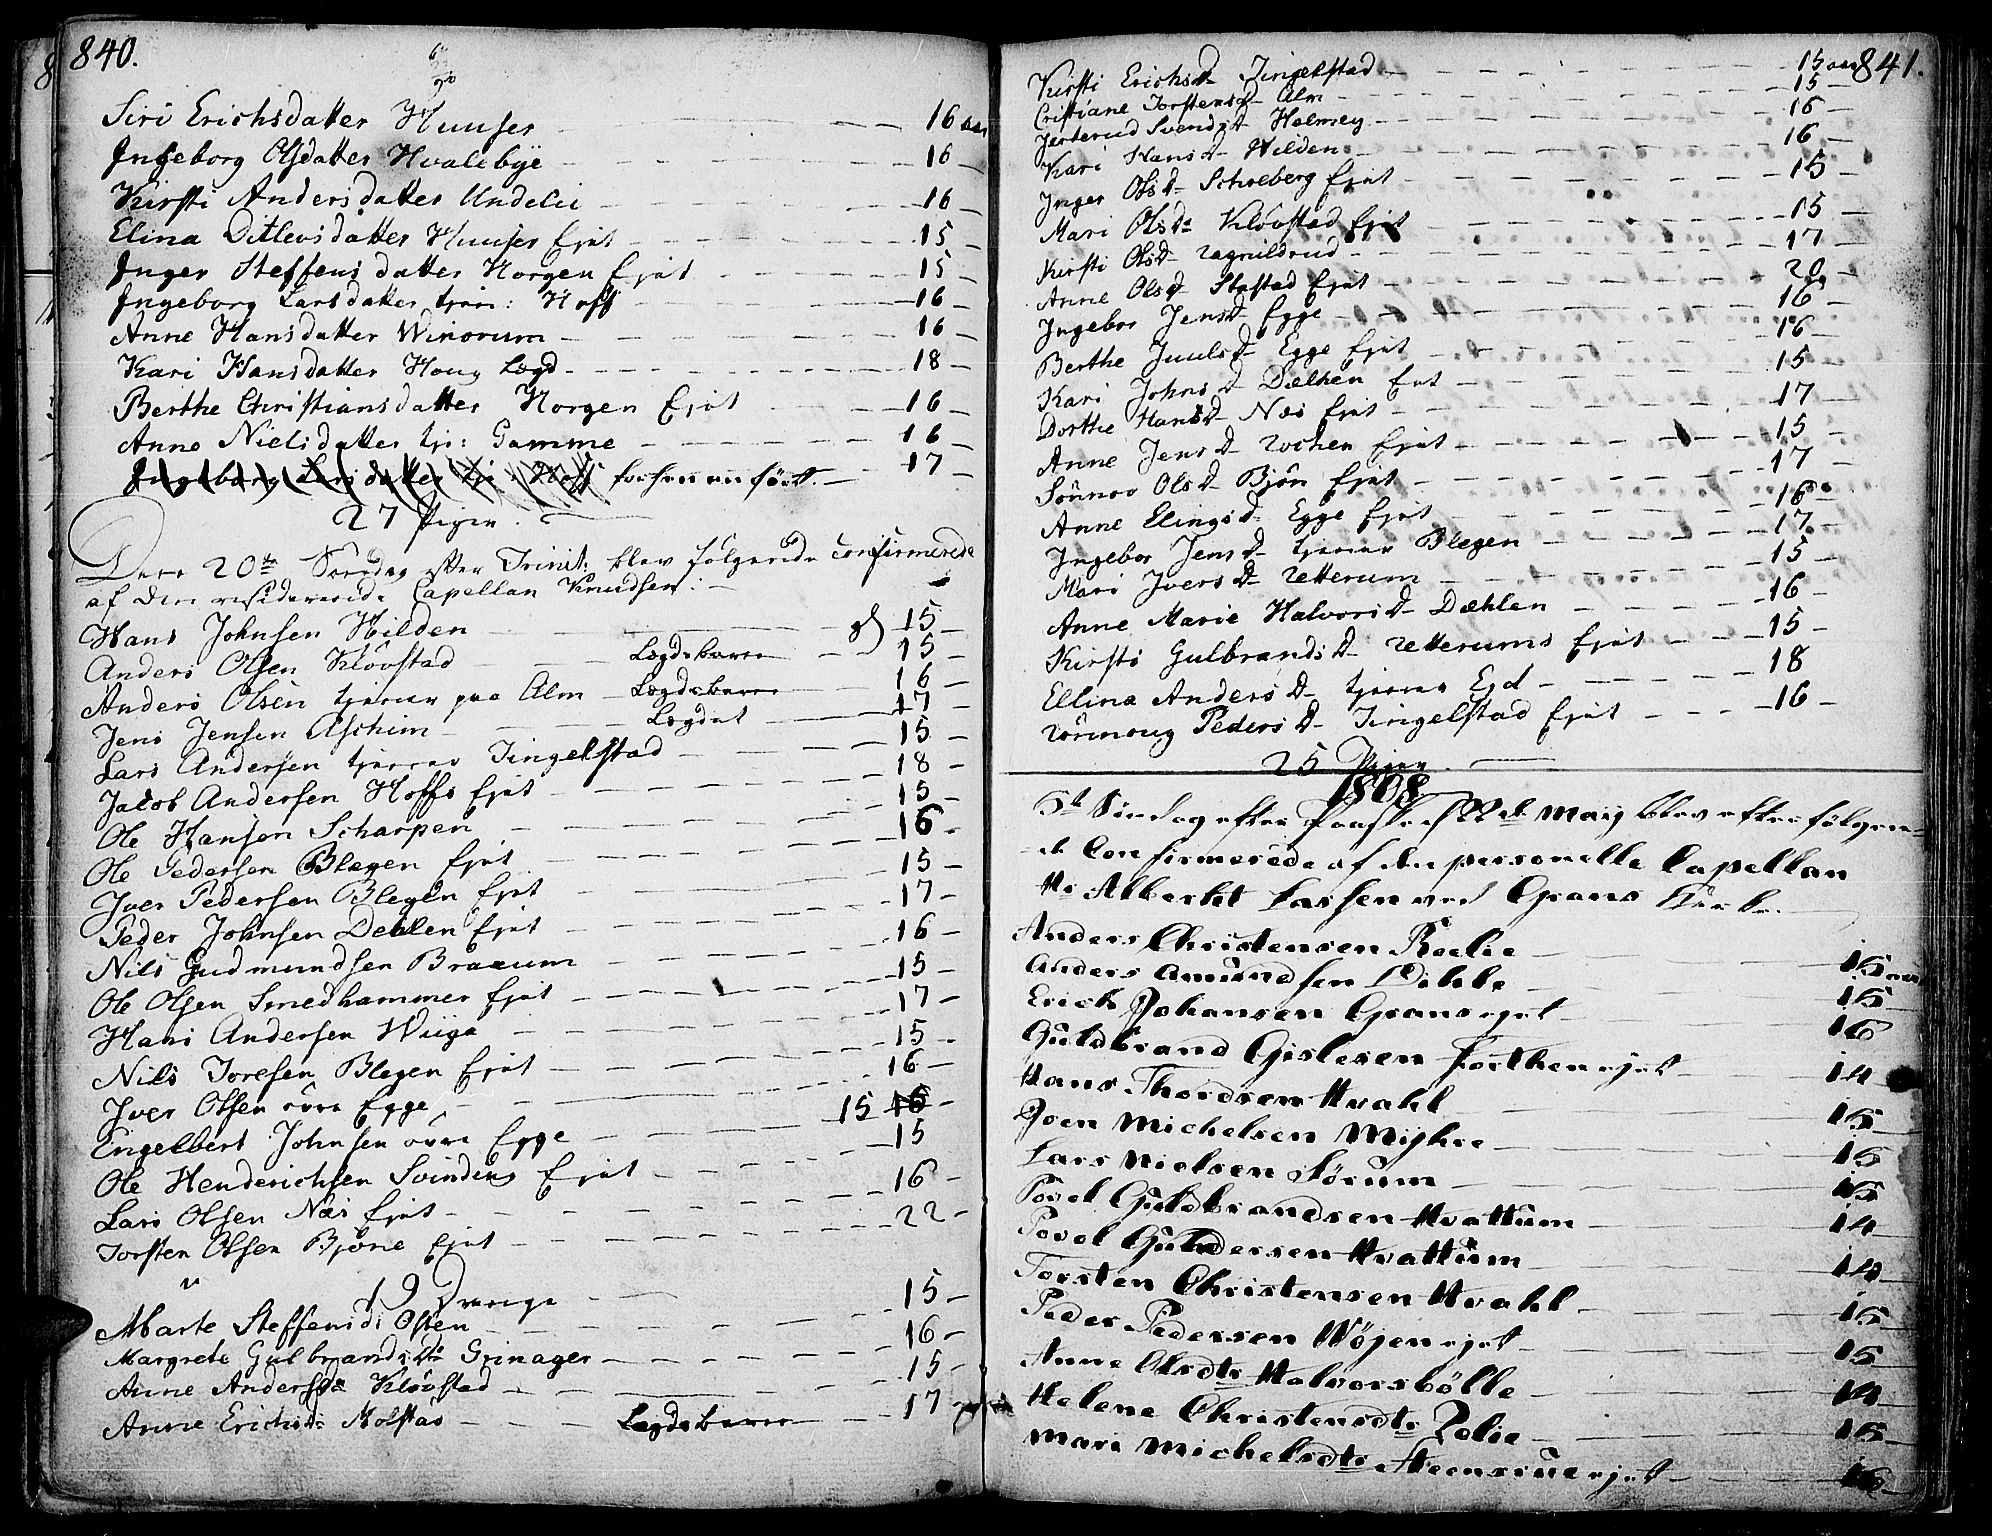 840.
Siri Erichsdatter Huuser — 16 aar
Ingeborg Olsdatter Hvalebye — 16 —
Kirsti Andersdatter Undelii — 16 —
Elina Ditlevsdatter Huuser Ejet — 15 —
Inger Steffensdatter Horgen Ejet — 15 —
Ingeborg Larsdatter tjen: Hoff — 16 —
Anne Hansdatter Winorum — 16 —
Kari Hansdatter Houg Lægd — 18 —
Berthe Christiansdatter Horgen Ejet — 16 —
Anne Nielsdatter tje: Gamme — 16 —
Ingeborg Larsdatter tje: Hoff forhen anført — 17 —
27 Piger.
Den 20de Søndag efter Trinit: blev følgende confirmerede
af den residerende Capellan Knudsen: —
Hans Johnsen Hilden — 15 —
Anders Olsen Kløvstad — Lægdsbarn — 15 —
Anders Olsen tjener paa Alm — Lægdsbarn — 16 —
Jens Jensen Aschim — Lægdet — 17 —
Lars Andersen tjener Tingelstad — 15 —
Jacob Andersen Hoffs Ejet — 18 —
Ole Hansen Scharpen — 15 —
Ole Pedersen Blegen Ejet — 16 —
Iver Pedersen Blegen Ejet — 15 —
Peder Johnsen Dehlen Ejet — 17 —
Nils Gudmundsen Braaum — 16 —
Ole Olsen Smedhammer Ejet — 15 —
Hans Andersen Wiiga — 17 —
Nils Toresen Blegen Ejet — 15 —
Iver Olsen øvre Egge — 16 —
Engelbert Johnsen øvre Egge — 15 16 —
Ole Henderichsen Svinding Ejet — 15
Lars Olsen Næs Ejet — 16 —
Torsten Olsen Bjøne Ejet — 22 —
19 Drenge
Marte Steffensd: Osten — 15 —
Margrete Gulbrandsd: Grinager — 16 —
Anne Andersd: Kløvstad — 15 —
Anne Erichsd: Molstad — Lægdsbarn — 17 —
841.
Kirsti Erichsd: Tingelstad — 15 aar
Cristiane Torstensd: Alm — 15 —
Jerterud Svendsd: Holmey — 16
Kari Hansd: Hilden — 16 —
Inger Olsd: Schoeberg Ejet — 15 —
Mari Olsd: Kløvstad Ejet — 15 —
Kirsti Olsd: Ragnildrud — 17 —
Anne Olsd: Stastad Ejet — 20 —
Ingebor Jensd: Egge — 16 —
Berthe Juulsd: Egge Ejet — 16 —
Kari Johnsd: Dælhen Eet — 15 —
Dorthe Hansd: Næs Ejet — 17 —
Anne Jensd: Rochen Ejet — 15 —
Sønnov Olsd: Bjøn Ejet — 17 —
Anne Elingsd: Egge Ejet — 16 —
Ingebor Jensd: tjener Blegen — 17 —
Mari Iversd: Retterum — 15 —
Anne Marie Halvorsd: Dæhlen — 16 —
Kirsti Gulbrandsd: Retterums Ejet — 15 —
Ellina Andersd: tjener Eid — 18
Rønnoug Pedersd: Tingelstad Ejet — 16 —
25 Piger. —
1808
5te Søndag efter Paaske d: 22de May blev efterfølgen-
de Confirmerede af den personelle Capellan
Hr Albecht Lassen ved Grans Kirke.
Anders Christensen Roelie — 15 aar
Anders Amundsen Dihle — 15 —
Erich Johansen Grans ejet — 16
Guldbrand Gislesen Jorthen ejet — 14
Hans Thordsen Hvahl — 15 —
Joen Michelsen Myhre — 15
Lars Nielsen Sørum — 15
Povel Guldbrandsen Hvattum — 14
Povel Gundersen Hvattum — 14
Torsten Christensen Hvahl — 15
Peder Pedersen Wøjen ejet — 15
Anne Olsdtr Halvorsbølle — 14
Helene Christensdtr Relie — 15 —
Mari Michelsdtr Steensrue ejet — 16 —